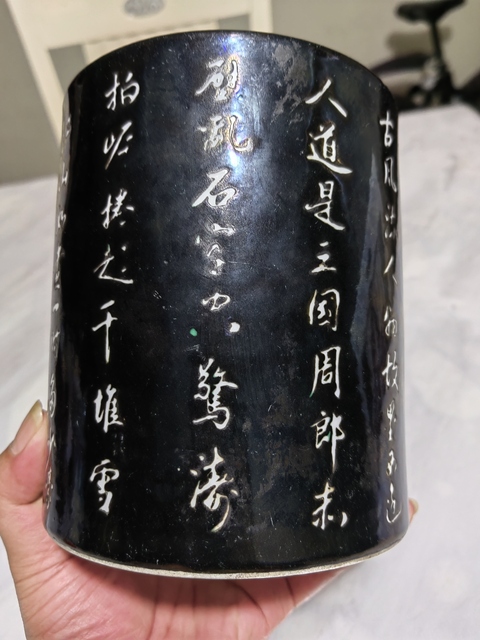 古风流人物故垒西边
人道是三国周郎赤
壁乱石穿空驚涛
拍岸捲起千堆雪